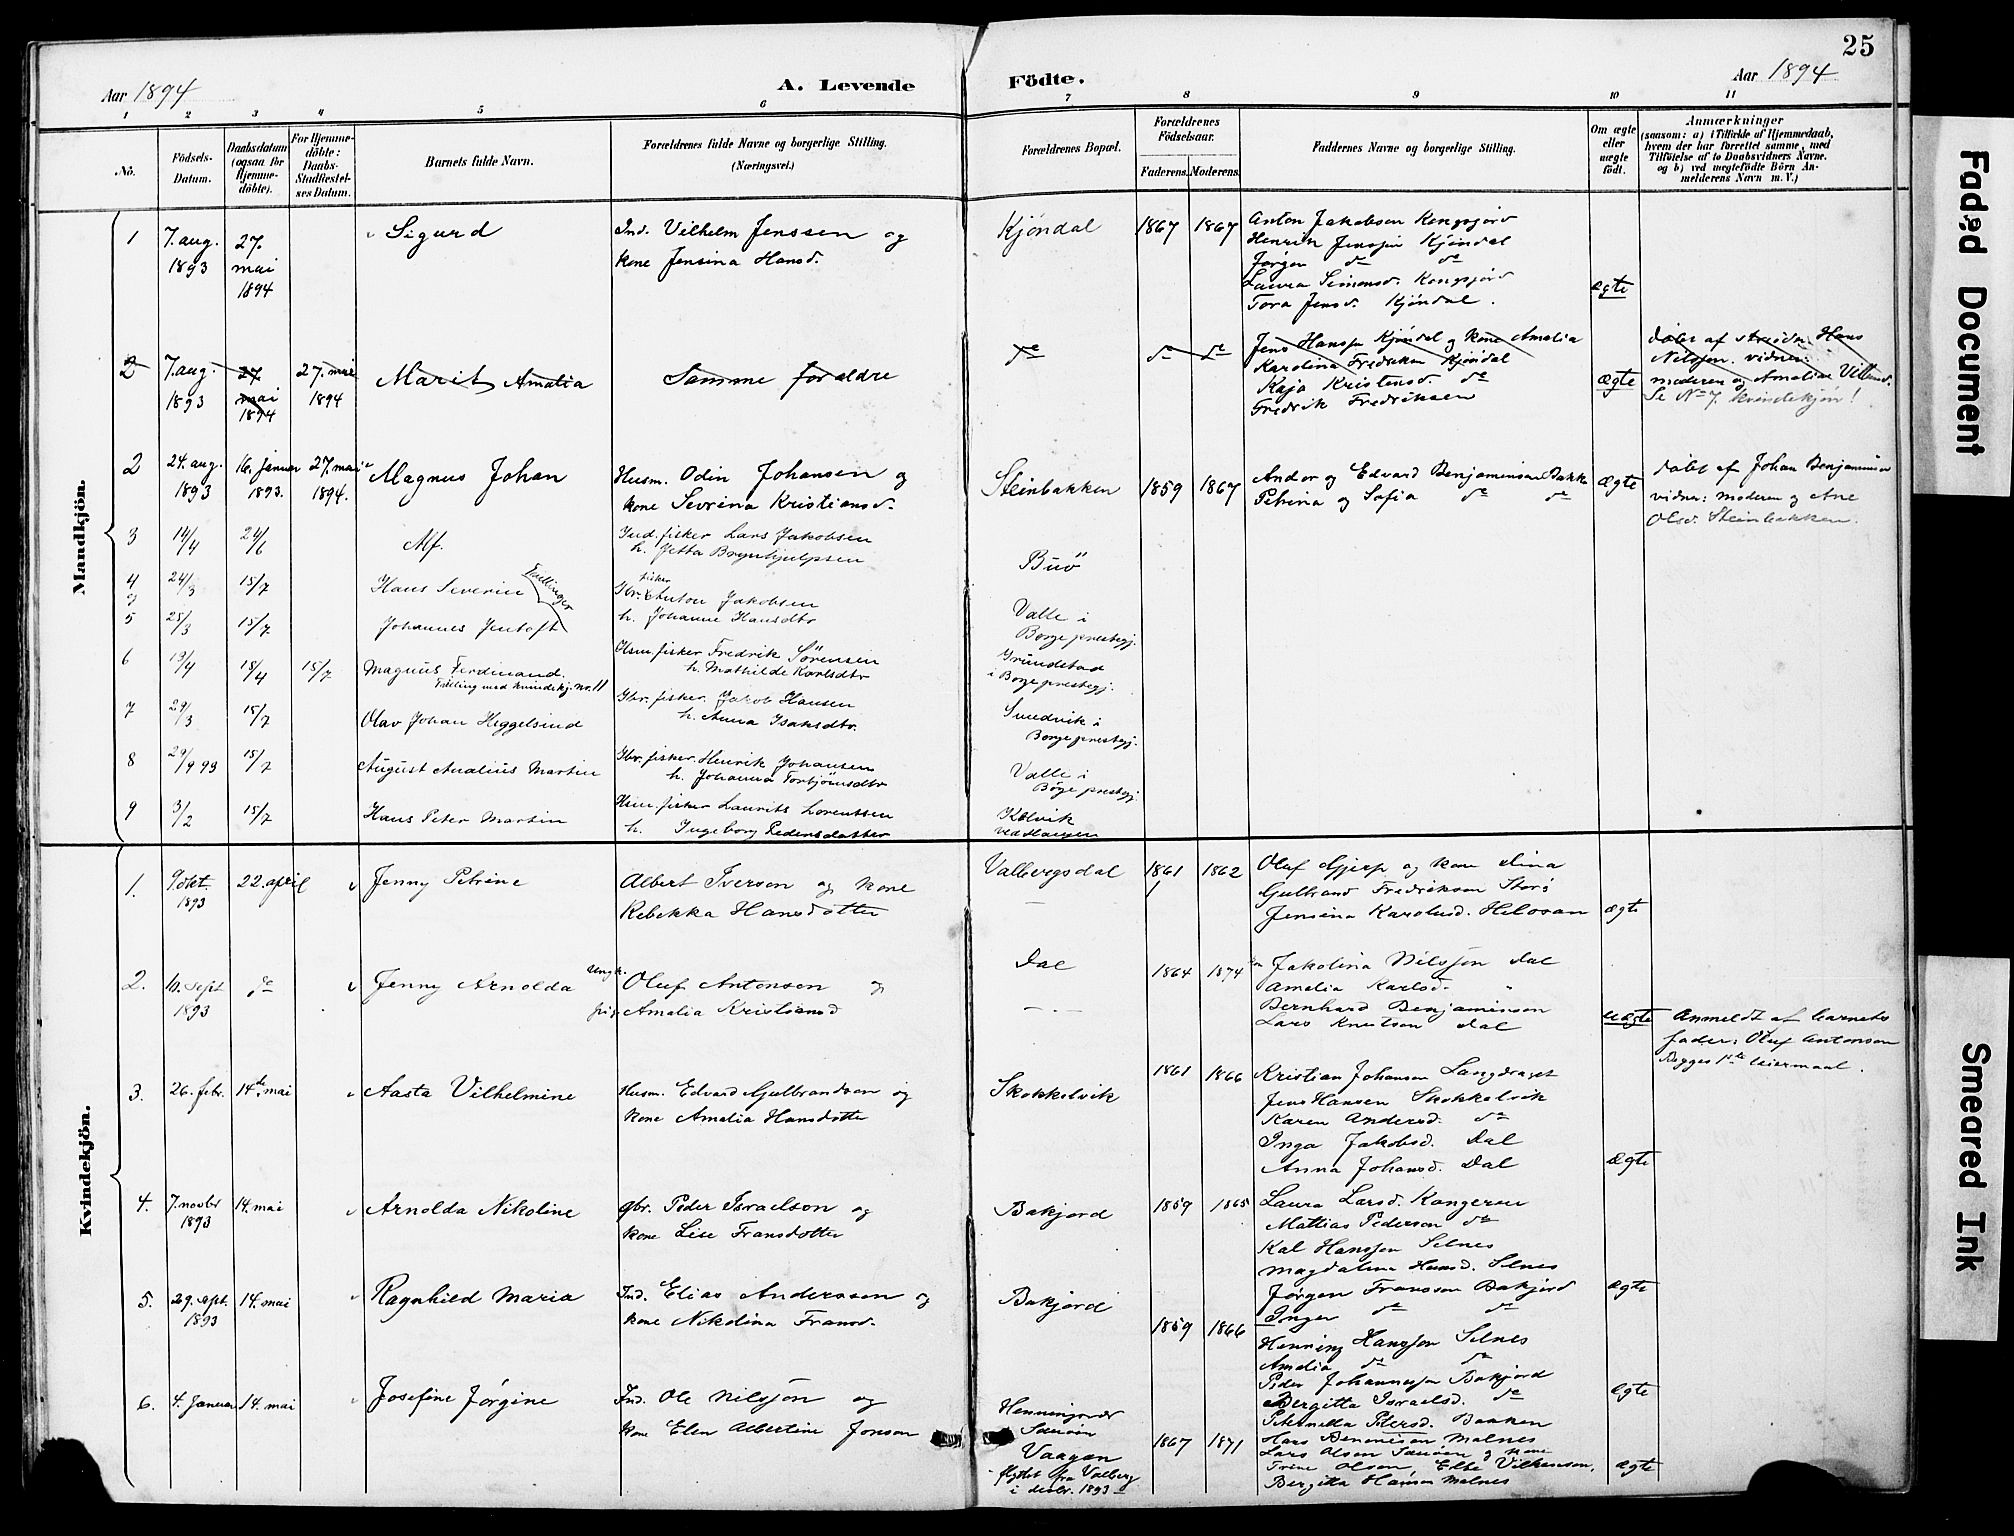 25
Aar 1894
A. Levende
Födte.
Aar 1894
1 2 3 4 5 6 7 8 9 10 11
No.
Födsels-
Datum.
Daabsdatum
(ogsaa for
Hjemme-
döbte).
For Hjemme-
döbte:
Daabs-
Stadfæstel-
ses Datum.
Barnets fulde Navn.
Forældrenes fulde Navne og borgerlige Stilling.
(Næringsvei.)
Forældrenes Bopæl.
Forældrenes
Födselsaar.
Faderens. Moderens.
Faddernes Navne og borgerlige Stilling.
Om ægte
eller
uægte
födt.
Anmærkninger
(saasom: a) i Tilfælde af Hjemmedaab,
hvem der har forrettet samme, med
Tilföielse af to Daabsvidners Navne.
og b) ved uægtefödte Börn An-
melderens Navn m. V.)
Mandkjön.
1 7. aug. 1893
27. mai 1894
Sigurd
Ind. Vilhelm Jenssen og
kone Jensina Hansd.
Kjöndal
1867 1867
Anton Jakobsen
Jenssen Kjöndal
Jørgen do do
Laura Simonsd.
Tora Jensd. Kjöndal.
ægte
2 7. aug. 1893
27 mai 1894
27. mai 1894
Marit Amalia
Samme forældre
do
do do
Jens Hanssen Kjöndal og kone Amalia
Karolina Fredriksen Kjöndal
Kaja Kristensd. do
Fredrik Fredriksen
ægte
döbt af Hans
Nilssen. vidner:
moderen og Amalia
Se No 7. kvindekjön!
2 24. aug. 1893
16. januar 1893.
27. mai 1894.
Magnus Johan
Husm. Odin Johansen og
kone Sevrina Kristiansd.
Steinbakken
1859 1867
Andor og Edvard Benjaminsen Bakke
Petrina og Sofia do do
ægte
döbt af Johan Benjaminsen
vidner: moderen og Ane
Olsd. Steinbakken.
3 14/4 24/6
Alf.
Ind. fisker Lars Jakobsen
h. Jetta Brynhjulpsen
Buö
4 24/3 15/7
Hans Severin
Tvillinger
Gbr. fisker Anton Jakobsen
h. Johanne Hansdtr
Valle i
Borge prestegj.
og
5 25/3 15/7
Johannes Jentoft
6 19/4 15/4 15/7
Magnus Ferdinand.
Tvilling med kvindekj. nr. 11
Husm. fisker Fredrik Sörensen
h. Mathilde Karlsdtr
Grundstad
i Borge prestegj.
7 29/3 15/7
Olav Johan Heggelund
Gbr. fisker. Jakob Hansen
h. Anna Isaksdtr.
Sundvik i
Borge prestegj.
8 29/9 93 15/7
August Analius Martin
Gbr. fisker Henrik Johansen
h. Johanna Torbjörnsdtr
Valle i
Börge prestegj.
9 3/2 15/7
Hans Peter Martin
Husm. fisker Laurits Lorentssen
h. Ingeborg Pedersdatter
Kolvik
ved Haugen
Kvindekjön.
1. 9 okt. 1893
22. april
Jenny Petrine
Albert Iversen og kone
Rebekka Hansdotter
Valbergsdal
1861 1862
Oluf Gjerp og kone Dina
Gulbrand Fredriksen Storö
Jensina Karolusd. Helosan
ægte
2. 10. sept 1893
do
Jenny Arnolda
ungk. Oluf Antonsen og
pig. Amalia Kristiansd
Dal
1864 1874
Jakolina Nilssen Dal
Amalia Karlsd. "
Bernhard Benjaminsen
Lars Knutsen Dal
uægte
Anmeldt af barnets
fader: Oluf Antonsen
Begges 1ste leiermaal.
3. 26. febr. 14de mai
Aasta Vilhelmine
Husm. Edvard Gulbrandsen og
kone Amalia Hansdotter
Skokkelvik
1861 1866
Kristian Johansen Langdraget
Jens Hansen Skokkelvik
Karen Andersd. do
Inga Jakobsd. Dal
Anna Johansd. Dal
ægte
4. 7. novbr 1893
14. mai
Arnolda Nikoline
gbr. Peder Israelsen og
kone Lise Fransdotter
Bakjord
1859 1865
Laura Larsd. Kangerur
Mattias Pedersen do
Kal Hanssen Selnes
Magdalena Hansd. Selnes
Jørgen Franssen Bakjord
Inger do do
ægte
5. 29. sept. 1893
14. mai
Ragnhild Maria
Ind. Elias Anderssen og
kone Nikolina Fransd.
Bakjord
1859 1866
Henning Hanssen Selnes
Amalia do do
Peder Johannessen Bakjord
Bergitta Israelsd. do
ægte
6. 4. Januar 14. mai
Josefine Jørgine
Ind. Ole Nilssen og
kone Elen Albertine Jonsen
Vaagan
flyttet fra Valberg
i desbr. 1893
1867 1871
Petronella Petersd. Baaken
Hans Malnes
Lars Olsen og kone
Trine Olsen
Bergitta Hansen Malnes
ægte
Faded Document
Smeared Ink